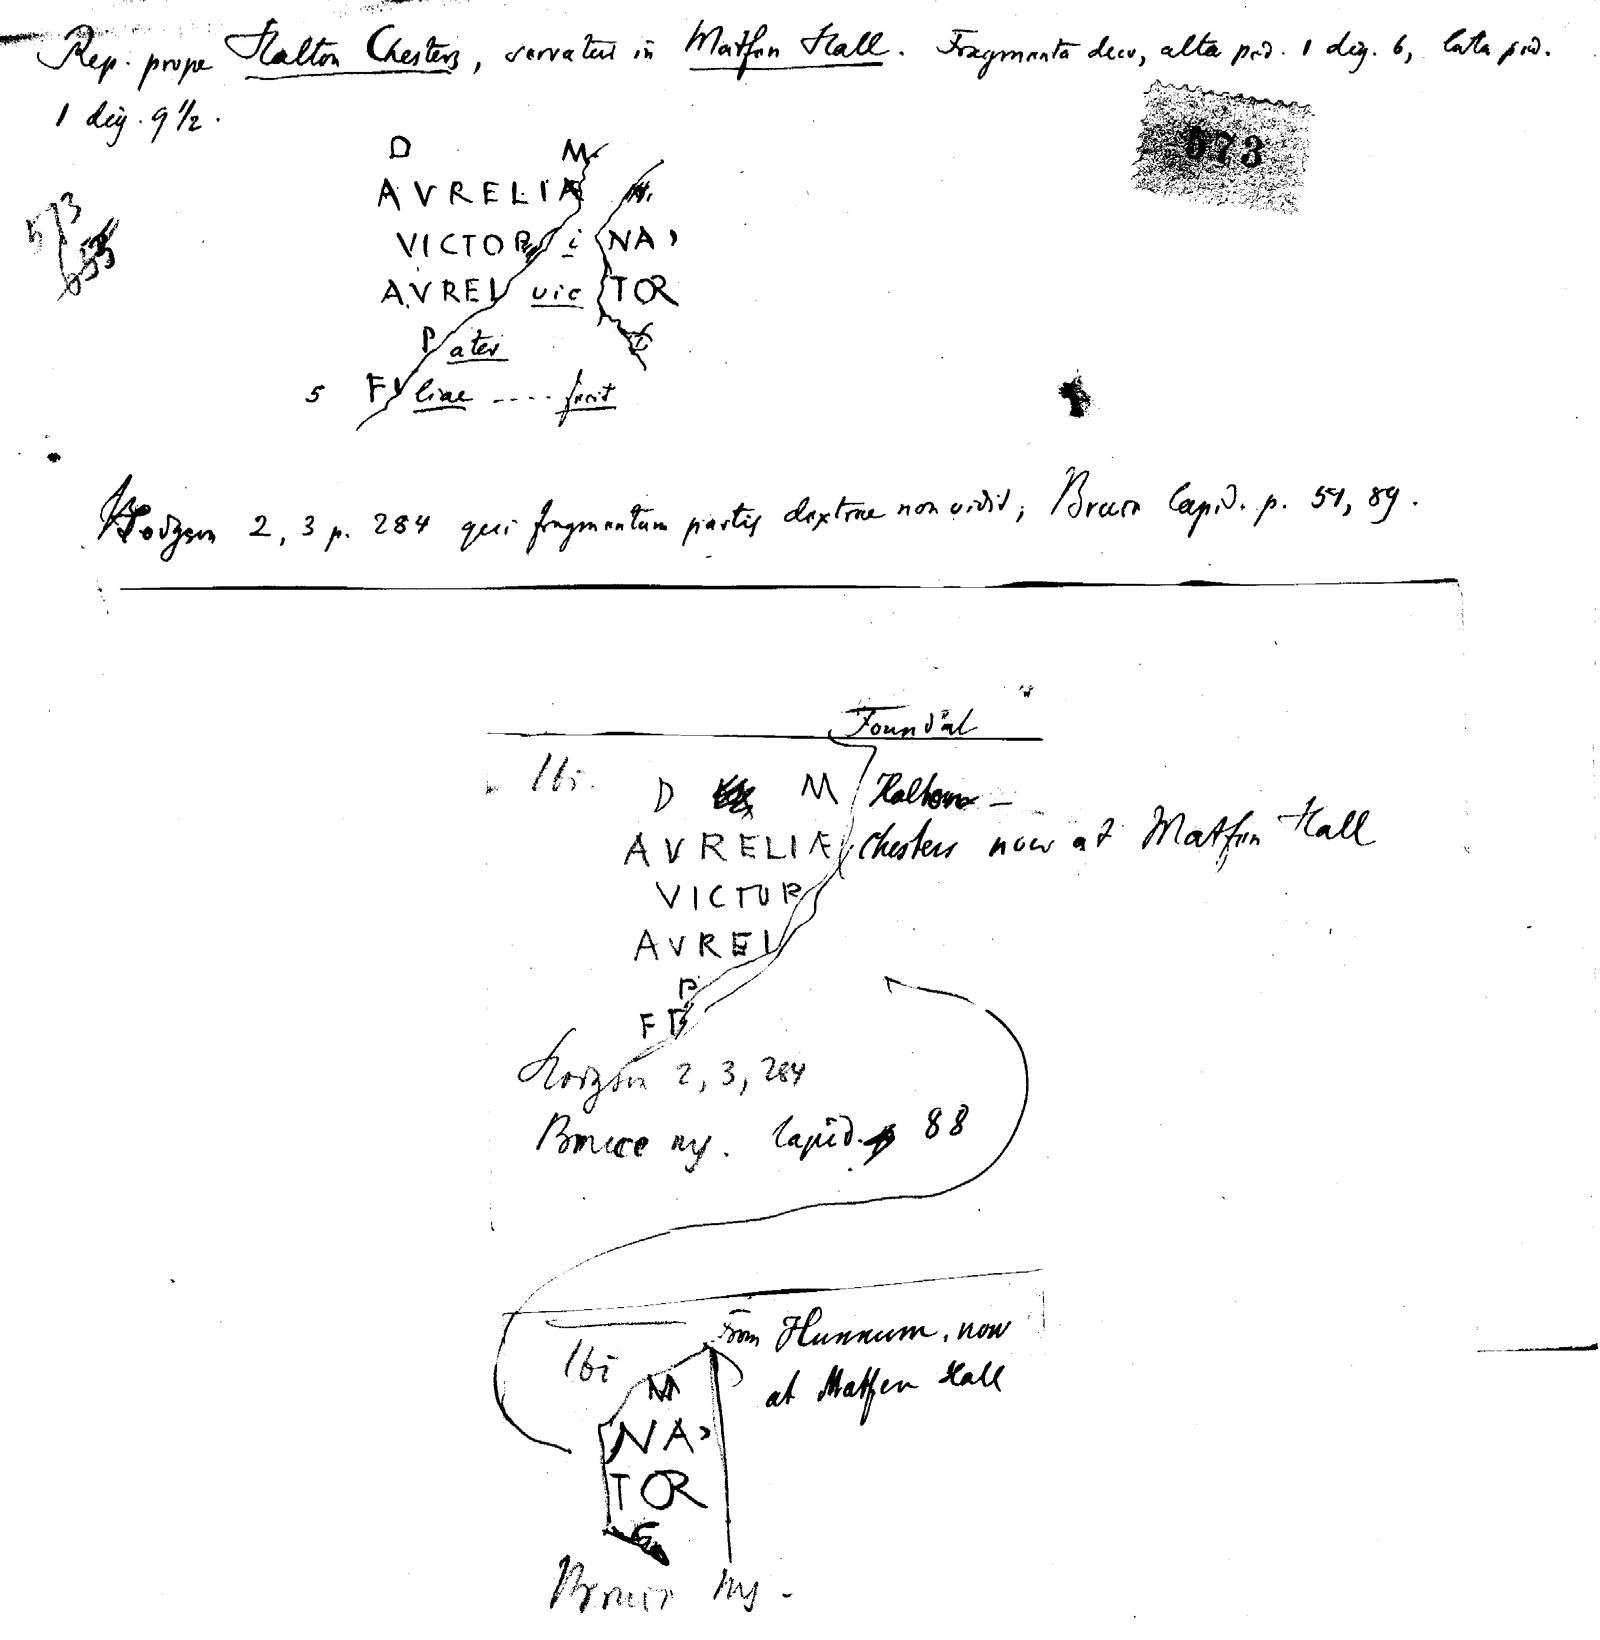 Rep. prope Halton Chesters, servatur in Matfen Hall. Fragmenta duo, alta ped. 1 dig. 6, lata ped.
1 dig. 9 1/2.
573
D M
573
AVRELIAE
VICTOR i NA ›
655
AVREL vic TOR
P ater
5 FI liae .... fecit
Hodgson 2, 3 p. 284 qui fragmentum partis dextrae non vidit; Bruce Lapid. p. 51, 89.
Found at
Ibi. D M Halton-
AVRELIAE Chesters now at Matfen Hall
VICTOR
AVREL
P
F
Hodgson 2, 3, 284
Bruce ms. Lapid. p 88
From Hunnum, now
Ibi
at Matfen Hall
M
NA ›
TOR
Bruce ms.